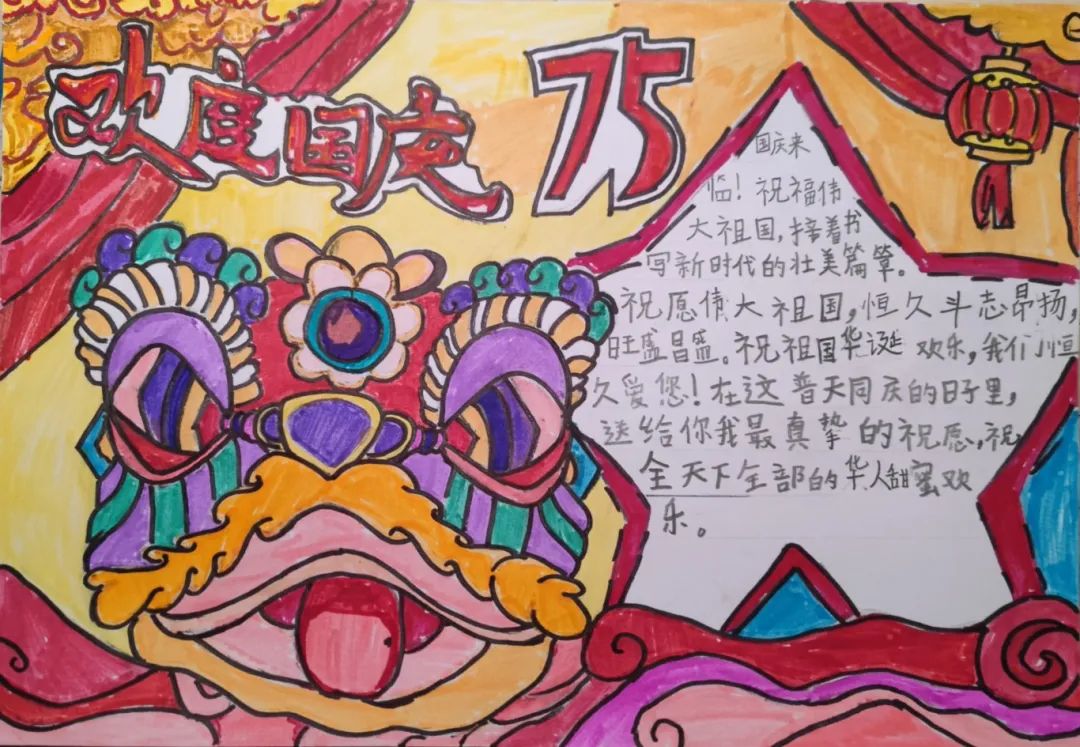 欢度国庆 75
国庆来
临！祝福伟
大祖国，接着书
写新时代的壮美篇章。
祝愿伟大祖国，恒久斗志昂扬，
旺盛昌盛。祝祖国华诞欢乐，我们恒
久爱您！在这普天同庆的日子里，
送给你我最真挚的祝愿，祝
全天下全部的华人甜蜜欢
乐。